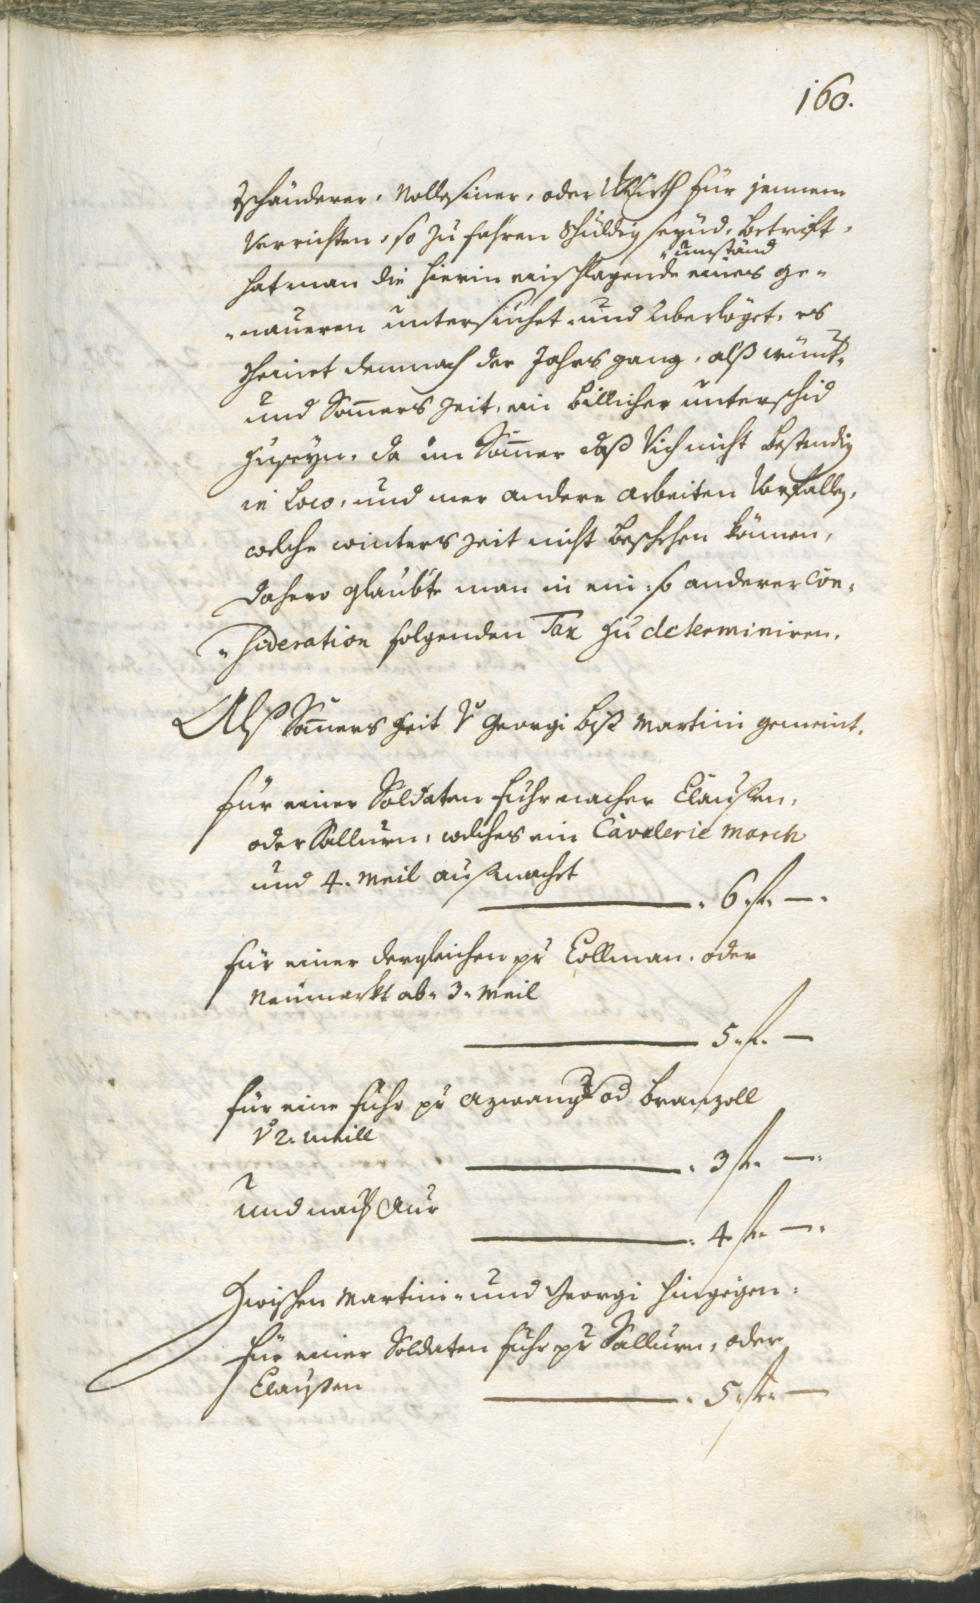 160.
Tschänderer, Nollesiner, oder Würth für jennem
verrichten, so zu fahren schuldig seynd, betrift,
umständ
hat man die hierin einschlagende eines ge-
-naueren untersuchet und überlöget, es
scheinet demnach der Jahrs gang, alß wünt-
und Som̅ers zeit, ein billicher unterschid
zuseyn, da im Som̅er daß Vich nicht bestendig
in loco, und mer andere arbeiten Vorfallen,
welche winters zeit nicht beschehen können,
dahero glaubte man in ein: so anderer Con-
-sideration folgenden Tax zu determiniren.
Alß Som̅ers zeit V Georgi biß Martini gemeint.
für einer Soldaten fuhr nacher Claußen,
oder Sallurn, welches ein Cavalerie march
und 4. Meil außmacht
6 fl. —
für einer dergleichen pr Collman, oder
Neumarkt ab. 3. Meil
5 fl. —
für eine fuhr pr Azwang od Branzoll
V 2. meill
3 fl. —
und nach Aur
4 fl. —
Zwischen Martini- und Georgi hingegen:
für einer Soldaten fuhr pr Sallurn, oder
Claußen
5 fl. —